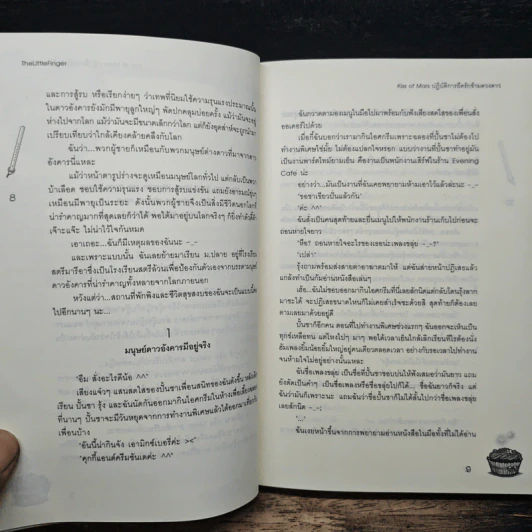 TheLittleFinger
และการสู้รบ หรือเรียกง่ายๆ ว่าเทพที่นิยมใช้ความรุนแรงประมาณนั้น
ในดาวอังคารยังมักมีพายุลูกใหญ่ๆ พัดปกคลุมบ่อยครั้ง แม้ว่ามันจะมี
ห่างไปจากโลก แม้ว่ามันจะมีขนาดเล็กกว่าโลก แต่ก็ยังถูกนำมา
เปรียบเทียบว่าใกล้เคียงคล้ายคลึงกับโลก
ฉันว่า...พวกผู้ชายก็เหมือนกับพวกมนุษย์ต่างดาวที่มาจากดาว
อังคารนี่แหละ
แม้ว่าหน้าตารูปร่างจะดูเหมือนมนุษย์โลกทั่วไป แต่ดันกลับเป็นพวก
บ้าเลือด ชอบใช้ความรุนแรง ชอบการสู้รบแข่งขัน แถมยังอารมณ์
เหมือนพายุเป็นระยะๆ ดังนั้น พวกผู้ชายจึงเป็นสิ่งมีชีวิตนอกโลก
น่ารำคาญมากที่สุดเลยก็ว่าได้ พอได้มาอยู่บนโลกจริงๆ ก็ยิ่งทำตัว
เจ๊าะแจ๊ะ ไม่น่าไว้ใจกันหมด
เอาเถอะ...ฉันก็มีเหตุผลของฉันนะ -_-
และเพราะแบบนั้น ฉันเลยย้ายมาเรียน ม.ปลาย อยู่ที่โรงเรียน
สตรีมารีอาซึ่งเป็นโรงเรียนสตรีล้วนเพื่อป้องกันตัวเองจากบรรดามนุษย์
ดาวอังคารที่น่ารำคาญทั้งหลายจากโลกภายนอก
หวังแต่ว่า...สถานที่พักพิงและชีวิตสุขสงบของฉันจะเป็นแบบนี้ต่อ
ไปอีกนานๆ นะ...
8
1
มนุษย์ดาวอังคารมีอยู่จริง
'อืม สั่งอะไรดีน้อ ^^'
เสียงแจ้วๆ แสนสดใสของปั้นชาเพื่อนสนิทของฉันดังขึ้น หลังเลิก
เรียน ปั้นชา รุ้ง และฉันนัดกันออกมากินไอศกรีมในห้างเพื่อเลี้ยงฉลอง
ที่นานๆ ปั้นชาจะมีวันหยุดจากการทำงานพิเศษแล้วได้ออกมาเที่ยวกับ
เพื่อนบ้าง
'อันนี้น่ากินจัง เอามิกซ์เบอรี่ค่ะ ><'
'คุกกี้แอนด์ครีมซันเดค่ะ ^^'
Kiss of Mars ปฏิบัติการยึดรักข้ามดวงดาว
ฉันกวาดตามองเมนูในมือไปมาพร้อมกับฟังเสียงสดใสของเพื่อนสั่ง
ออเดอร์ไปด้วย
เมื่อกี้ฉันบอกว่าเรามากินไอศกรีมเพราะฉลองที่ปั้นชาไม่ต้องไป
ทำงานพิเศษใช่มั้ย ไม่ต้องแปลกใจหรอก แบบว่างานที่ปั้นชาทำอยู่มัน
เป็นงานพาร์ตไทม์ยามเย็น คืองานเป็นพนักงานเสิร์ฟในร้าน Evening
Café น่ะ
อย่างว่า...มันเป็นงานที่ฉันเคยพยายามห้ามเอาไว้แล้วล่ะนะ -_-
'ขอชาเขียวปั่นแล้วกัน'
'ค่ะ ^^'
ฉันสั่งเป็นคนสุดท้ายและยื่นเมนูไปให้พนักงานร้านเก็บไปก่อนจะ
ถอนหายใจยาว
'หือ? ถอนหายใจอะไรของเธอน่ะเพลงขลุ่ย -_-?'
'เปล่า'
รุ้งถามพร้อมส่งสายตาอาฆาตมาให้ แต่ฉันส่ายหน้าปฏิเสธแล้ว
แกล้งทำเป็นก้มอ่านหนังสือเล่นๆ
เธอ...ฉันไม่ชอบออกมากินไอศกรีมที่นี่เลยสักนิดแต่กลับโดนรุ้งลาก
มาซะได้ จะปฏิเสธขนาดไหนก็ไม่เคยสำเร็จซะด้วยสิ สุดท้ายก็ต้องเลย
ตามเลยมาด้วยอยู่ดี
ปั้นชาก็อีกคน ตอนที่ไปทำงานพิเศษช่วงแรกๆ ฉันออกจะเห็นเป็น
ทุกข์เหลือทน แต่ไหงไปๆ มาๆ พอได้เวลาเย็นใกล้เลิกเรียนทีไรต้องนั่ง
ฮัมเพลงยิ้มน้อยยิ้มใหญ่อยู่คนเดียวตลอดเวลา อย่างกับรอเวลาไปทำงาน
จนห้ามใจไม่อยู่อย่างนั้นแหละ
ฉันชื่อเพลงขลุ่ย เป็นชื่อที่ปั้นชาชอบบ่นให้ฟังเสมอว่ามันยาว แถม
ยังตัดเป็นคำๆ เป็นเพลงหรือชื่อขลุ่ยไปก็ได้... ชื่อฉันยาวก็จริง แต่
ว่ามันก็เพราะนะ แถมฉันว่าชื่อปั้นชาก็ไม่ได้สั้นไปกว่าชื่อเพลงขลุ่ย
เลยสักนิด -_-
'...'
ฉันเงยหน้าขึ้นจากการพยายามอ่านหนังสือในมือทั้งที่ไม่ได้อ่าน
๑